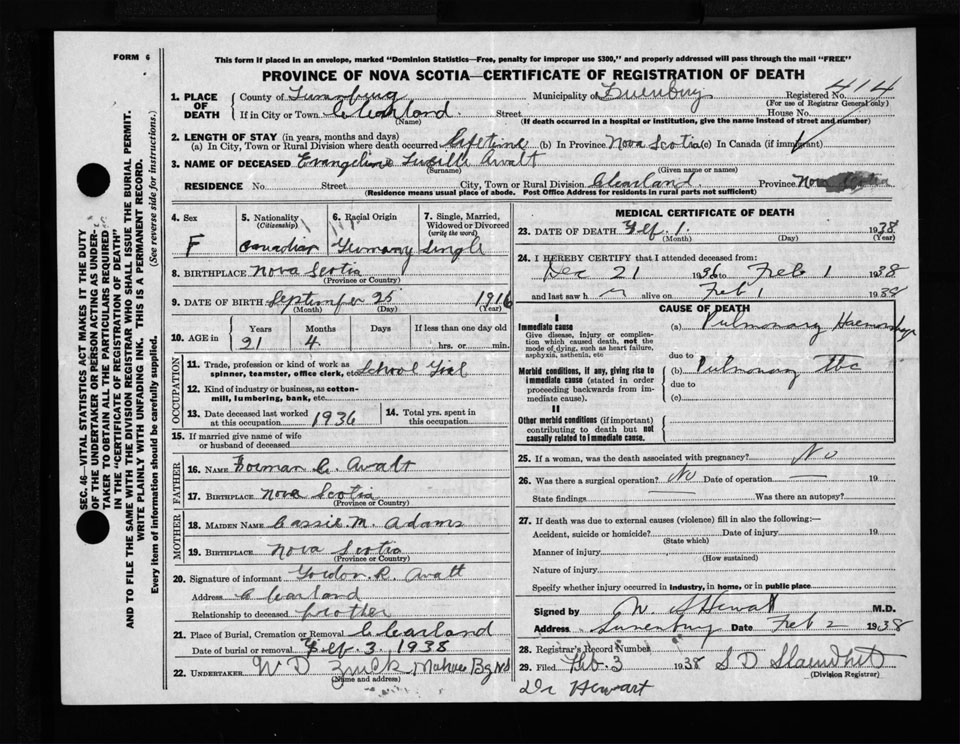 FORM 6
This form if placed in an envelope, marked "Dominion Statistics—Free, penalty for improper use $300," and properly addressed will pass through the mail "FREE"
PROVINCE OF NOVA SCOTIA—CERTIFICATE OF REGISTRATION OF DEATH
SEC. 46—VITAL STATISTICS ACT MAKES IT THE DUTY
OF THE UNDERTAKER OR PERSON ACTING AS UNDER-
TAKER TO OBTAIN ALL THE PARTICULARS REQUIRED
IN THE "CERTIFICATE OF REGISTRATION OF DEATH"
AND TO FILE THE SAME WITH THE DIVISION REGISTRAR WHO SHALL ISSUE THE BURIAL PERMIT.
WRITE PLAINLY WITH UNFADING INK. THIS IS A PERMANENT RECORD.
Every item of information should be carefully supplied. (See reverse side for instructions.)
1. PLACE OF DEATH County of Lunenburg Municipality of Lunenburg Registered No. 414
(For use of Registrar General only)
If in City or Town Clearland Street House No.
(Name) (If death occurred in a hospital or institution, give the name instead of street and number)
2. LENGTH OF STAY (in years, months and days)
(a) In City, Town or Rural Division where death occurred Lifetime (b) In Province Nova Scotia (c) In Canada (if immigrant)
3. NAME OF DECEASED Evangeline Lucille Awalt
(Surname) (Given name or names)
RESIDENCE No. Street City, Town or Rural Division Clearland Province Nova
(Residence means usual place of abode. Post Office Address for residents in rural parts not sufficient)
4. Sex 5. Nationality (Citizenship) 6. Racial Origin 7. Single, Married, Widowed or Divorced (write the word)
F Canadian Germany Single
8. BIRTHPLACE Nova Scotia
(Province or Country)
9. DATE OF BIRTH September 25 1916
(Month) (Day) (Year)
10. AGE in Years Months Days If less than one day old
21 4 hrs. or min.
OCCUPATION
11. Trade, profession or kind of work as spinner, teamster, office clerk, etc. School Girl
12. Kind of industry or business, as cotton-mill, lumbering, bank, etc.
13. Date deceased last worked at this occupation 1936 14. Total yrs. spent in this occupation
15. If married give name of wife or husband of deceased
FATHER
16. NAME Norman C. Awalt
17. BIRTHPLACE Nova Scotia
(Province or Country)
MOTHER
18. MAIDEN NAME Cassie. M. Adams
19. BIRTHPLACE Nova Scotia
(Province or Country)
20. Signature of informant Gordon R. Awalt
Address Clearland
Relationship to deceased brother
21. Place of Burial, Cremation or Removal Clearland
Date of burial or removal Feb. 3. 1938
22. UNDERTAKER W D Zinck, Mahone Bay NS
(Name and address)
MEDICAL CERTIFICATE OF DEATH
23. DATE OF DEATH Feb. 1. 1938
(Month) (Day) (Year)
24. I HEREBY CERTIFY that I attended deceased from:
Dec 21 1936 to Feb 1 1938
and last saw h er alive on Feb 1 1938
CAUSE OF DEATH
I
Immediate cause (a) Pulmonary Haemorrhage
Give disease, injury or complication which caused death, not the mode of dying, such as heart failure, asphyxia, asthenia, etc
due to
Morbid conditions, if any, giving rise to immediate cause (stated in order proceeding backwards from immediate cause). (b) Pulmonary tbc
due to
(c)
II
Other morbid conditions (if important) contributing to death but not causally related to immediate cause.
25. If a woman, was the death associated with pregnancy? No
26. Was there a surgical operation? No Date of operation 19
State findings Was there an autopsy?
27. If death was due to external causes (violence) fill in also the following:—
Accident, suicide or homicide? Date of injury 19
(State which)
Manner of injury
(How sustained)
Nature of injury
Specify whether injury occurred in industry, in home, or in public place
Signed by W. Hewat M.D.
Address Lunenburg Date Feb 2 1938
28. Registrar's Record Number
29. Filed Feb. 3 1938 S D
(Division Registrar)
Dr Hewart